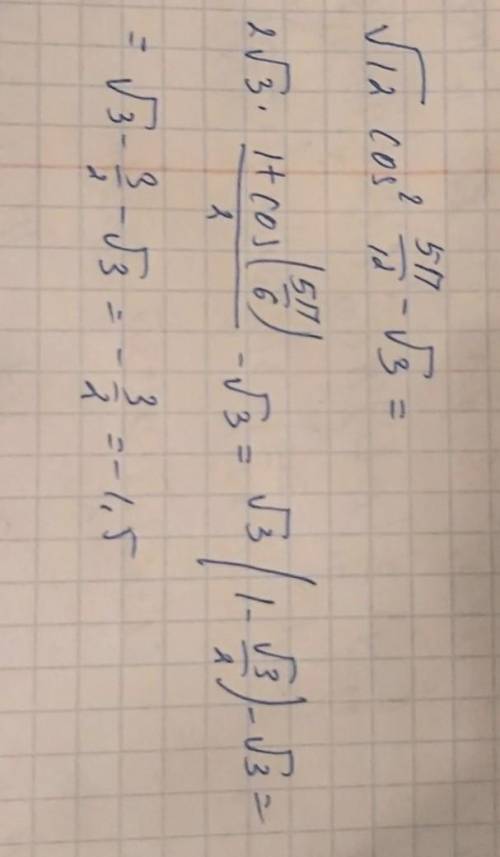 √12 cos² 5π/12 - √3 =
2√3 · (1 + cos(5π/6))/2 - √3 = √3 (1 - √3/2) - √3 =
= √3 - 3/2 - √3 = - 3/2 = -1,5